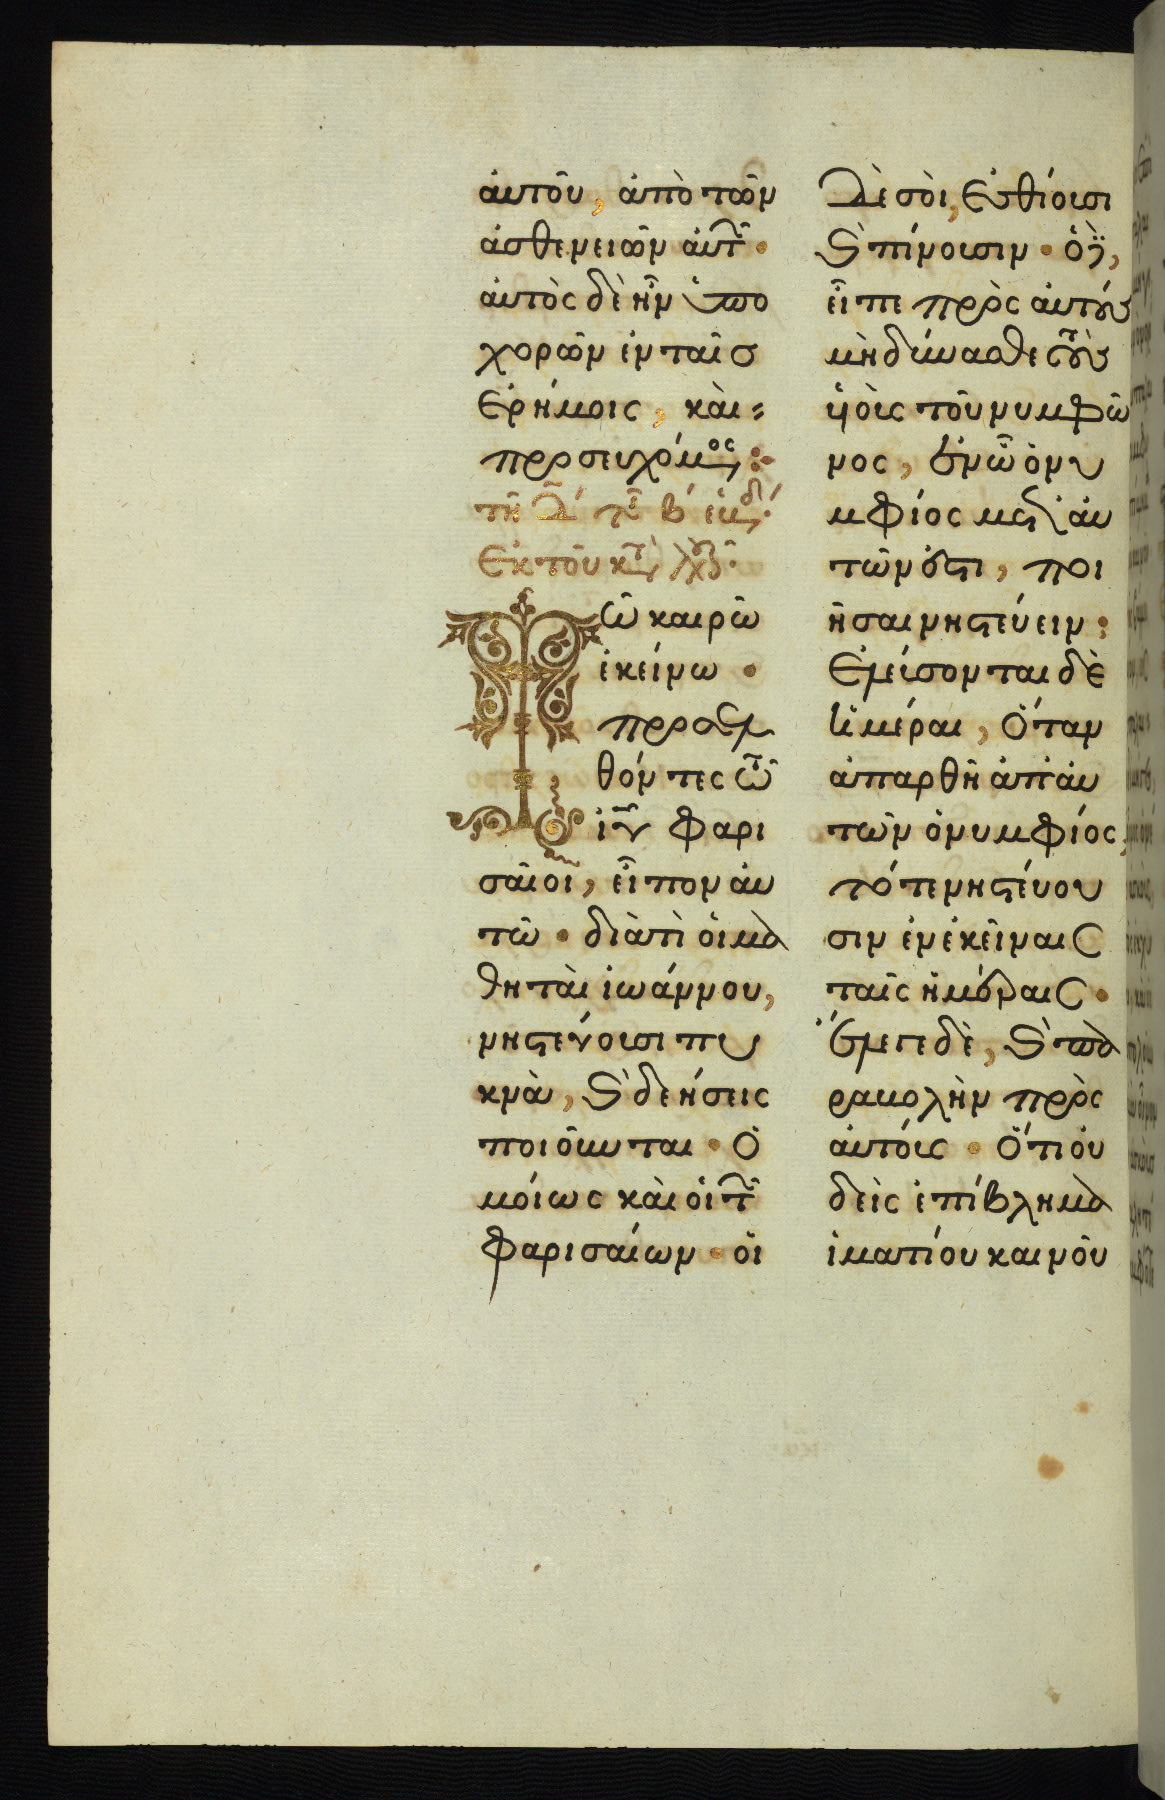 ἀυτοῦ, ἀπὸ τῶν
ἀσθενειῶν ἀυτ῀·
ἀυτὸς δὲ ἦν ὑπο
χορῶν ἐν ταῖσ
Ἐρήμοις, κὰι
προσευχόμ(εν)ος:
τῆ Δ΄ τ῀ Β΄ ἑβδ΄·
Ἐκ τοῦ κτ λχ῀·
Τῶ καιρῶ
ἐκείνω ·
προσελ
θόντες τῶ
ἰυ φαρι
σᾶιοι, εἶπον ἀυ
τῶ · διὰτὶ ὁι μα
θητὰι ἰωάννου,
νηστεύουσι πυ
κνὰ, ϗ δεήσεις
ποιοῦνται · Ὁ
μόιως κὰι ὁι τ῀
Φαρισαίων · ὁι
Δὲ σὸι, Ἐσθίουσι
ϗ πίνουσιν · ὁ ϊς,
εἶπε πρὸς ἀυτοὺς
μὴ δύνασθε τοὺς
ϋὁις τοῦ νυμφῶ
νος, ἐν ὧ ὁ νυ
μφίος μετ᾽ ἀυ
τῶν ἐστι, ποι
ῆσαι νηστεύειν;
Ἐλεύσονται δὲ
ἡμέραι, Ὅταν
ἀπαρθῆ ἀπ᾽ ἀυ
τῶν ὁ νυμφίος,
τότε νηστεύου
σιν ἐν ἐκεῖναις
ταῖς ἡμέραις ·
Ἔλεγε δὲ, ϗ πα
ραβολὴν πρὸς
ἀυτόυς · Ὅτι ὀυ
δεὶς ἐπίβλημα
ἱματίου καινοῦ